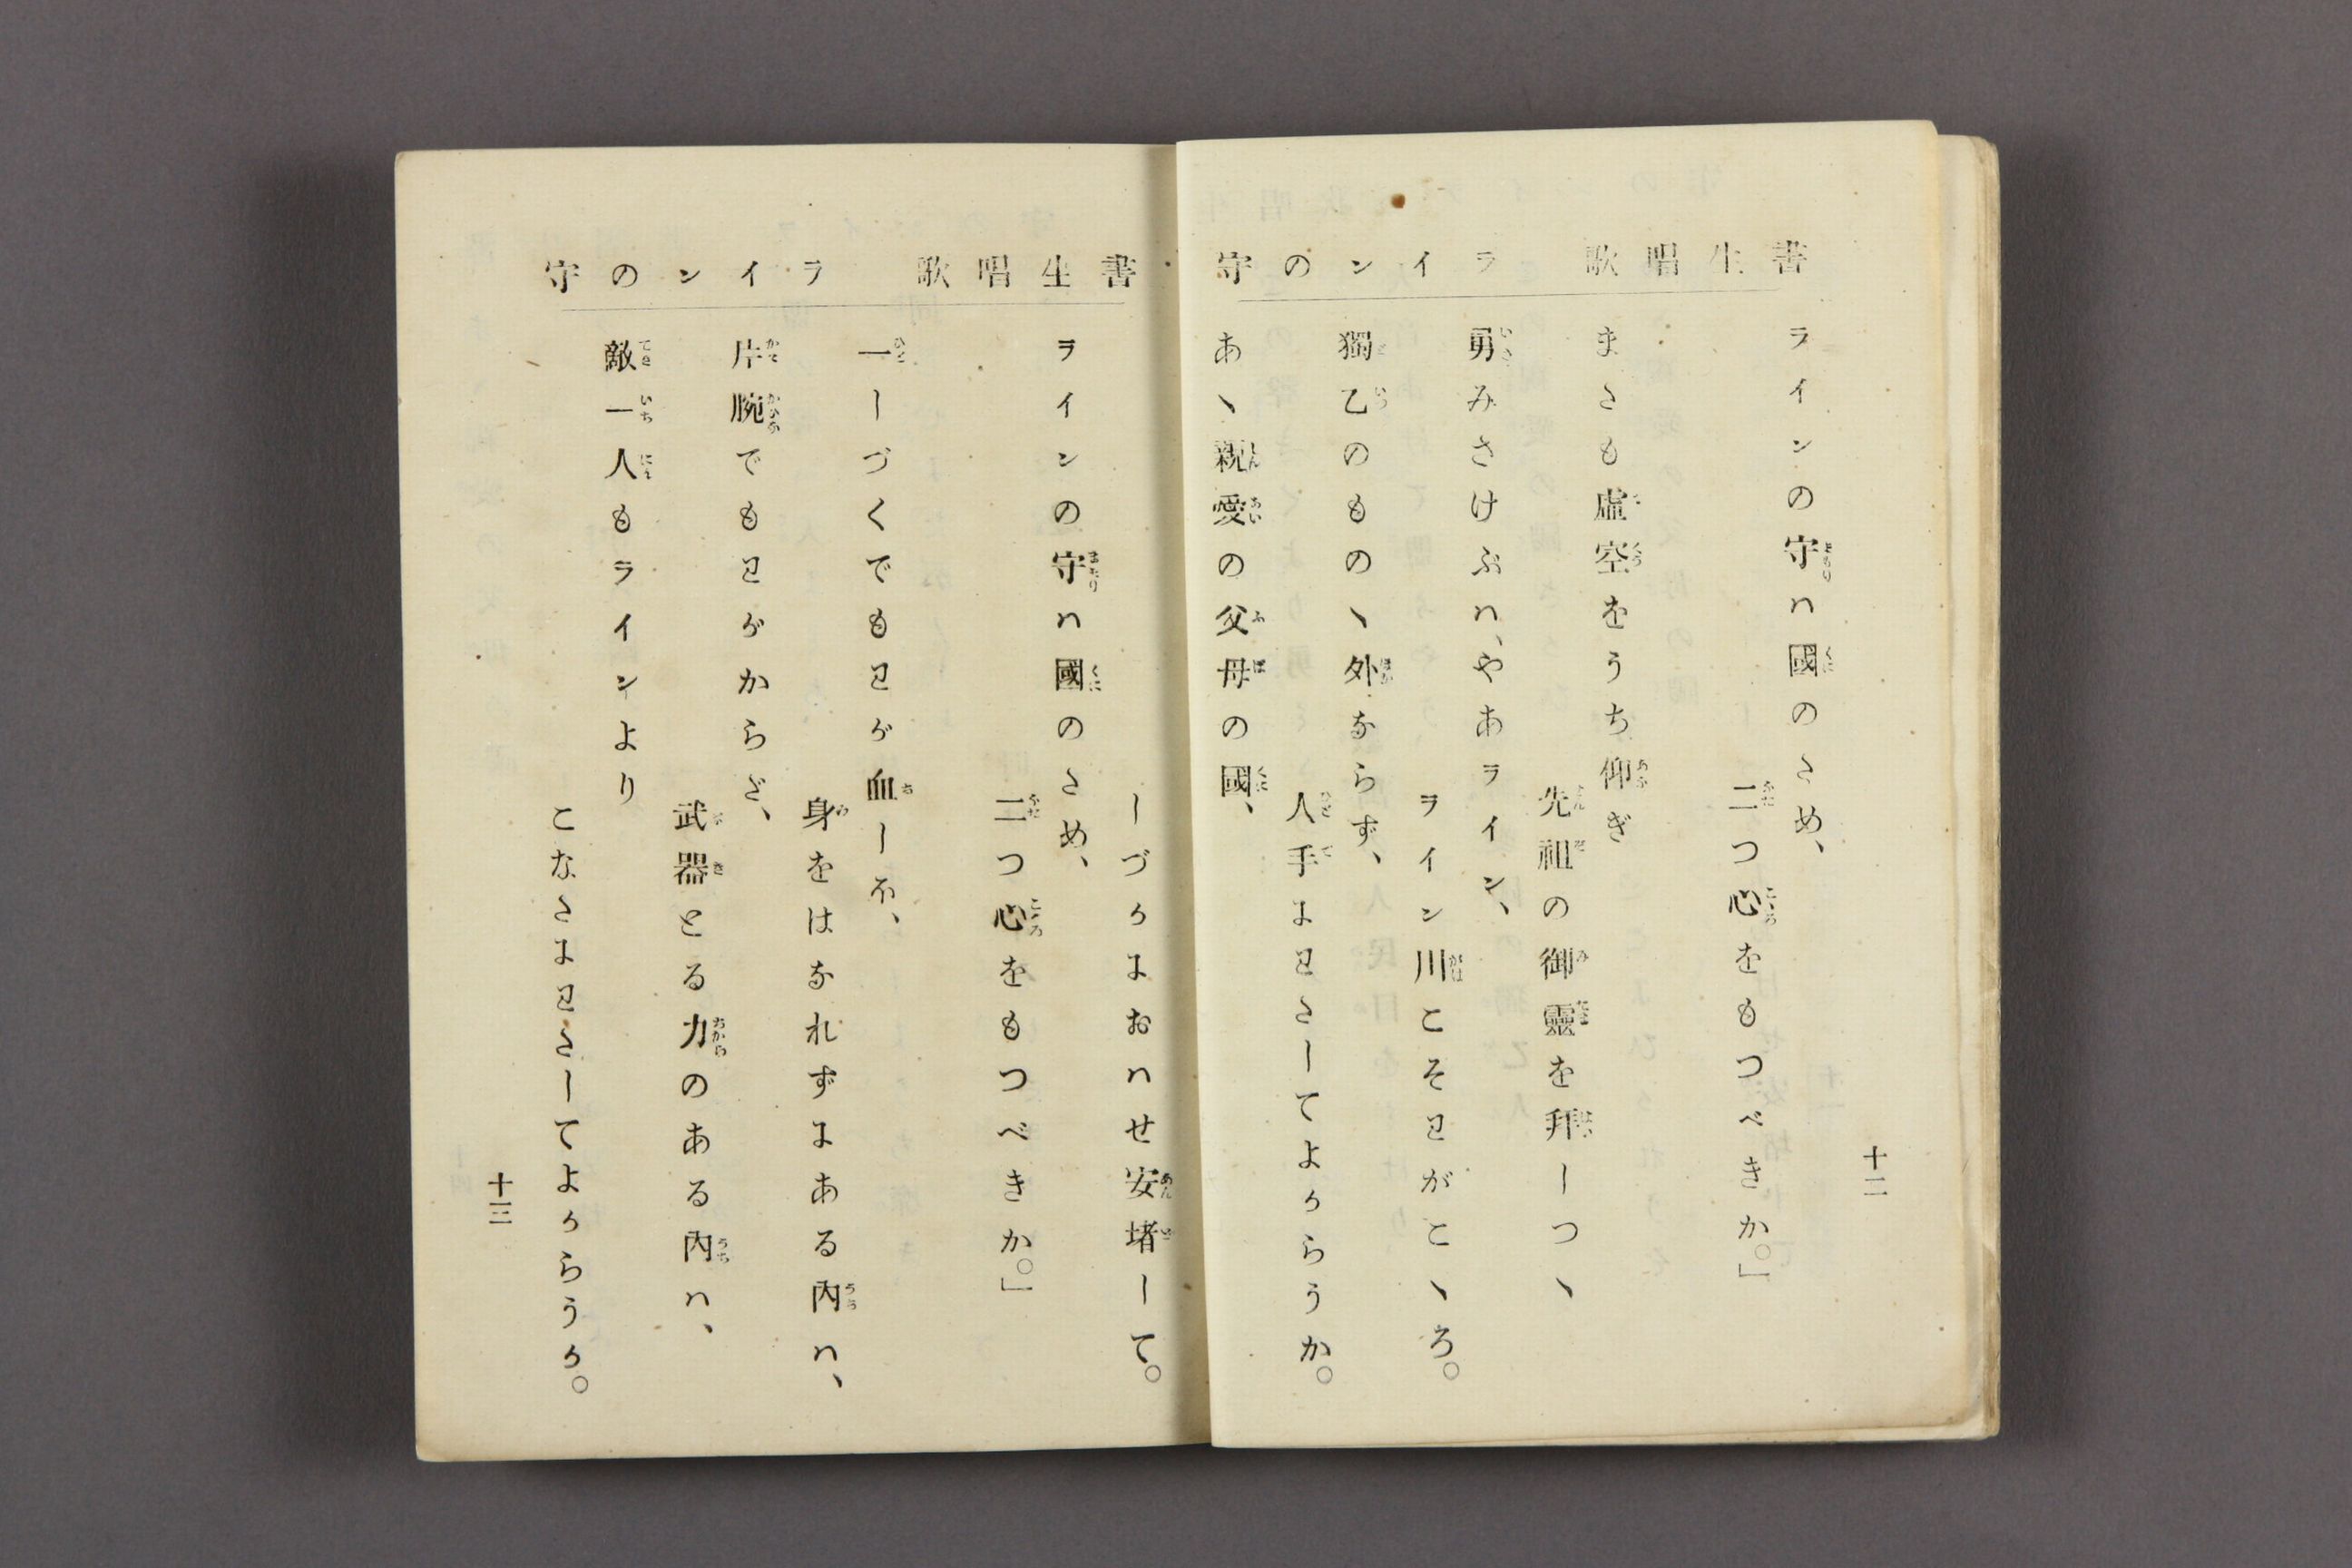 書生唱歌 ラインの守
十二
ラインの守ハ國のため、
二つ心をもつべきか。」
またも虛空をうち仰ぎ
先祖の御靈を拜しつヽ
勇みさけぶハ、やあライン、
ライン川こそわがこヽろ。
獨乙のものヽ外ならず、
人手にわたしてよからうか。
あヽ親愛の父母の國、
書生唱歌 ラインの守
しづかにおハせ安堵して。
ラインの守ハ國のため、
二つ心をもつべきか。」
一しづくでもわが血しほ、
身をはなれずにある內ハ、
片腕でもわがからだ、
武器とる力のある內ハ、
敵一人もラインより
こなたにわたしてよからうか。
十三